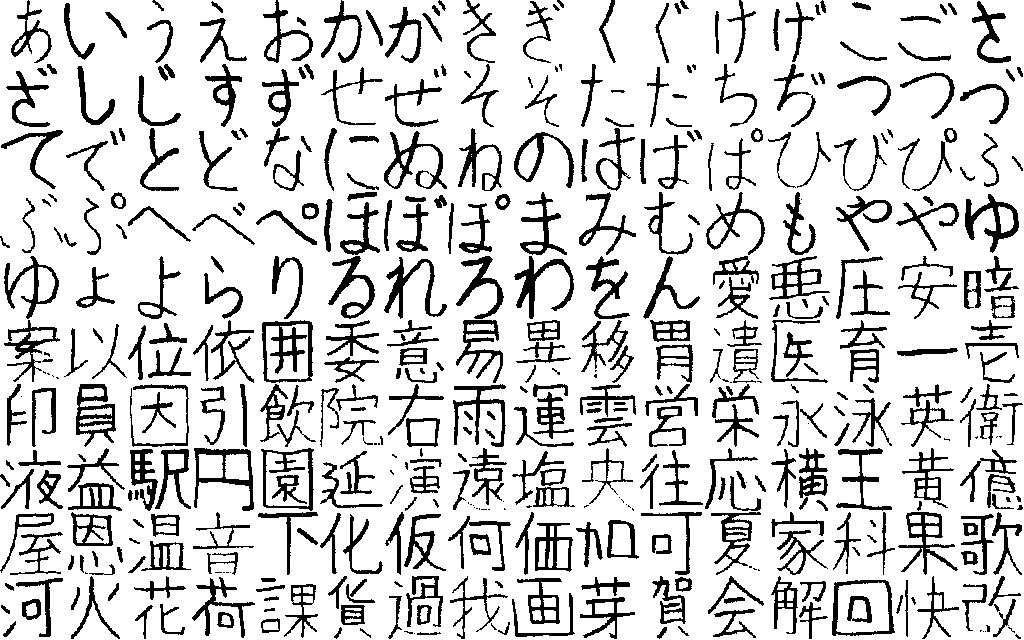 あいうえおかがきぎくぐけげこごさ
ざしじすずせぜそぞただちぢつつづ
てでとどなにぬねのはばぱひびぴふ
ぶぷへべぺほぼぽまみむめもややゆ
ゆょよらりるれろわをん愛悪圧安暗
案以位依囲委意易異移胃遺医育一壱
印員因引飲院右雨運雲営栄永泳英衛
液益駅円園延演遠塩央往応横王黄億
屋恩温音下化仮何価加可夏家科果歌
河火花荷課貨過我画芽賀会解回快改